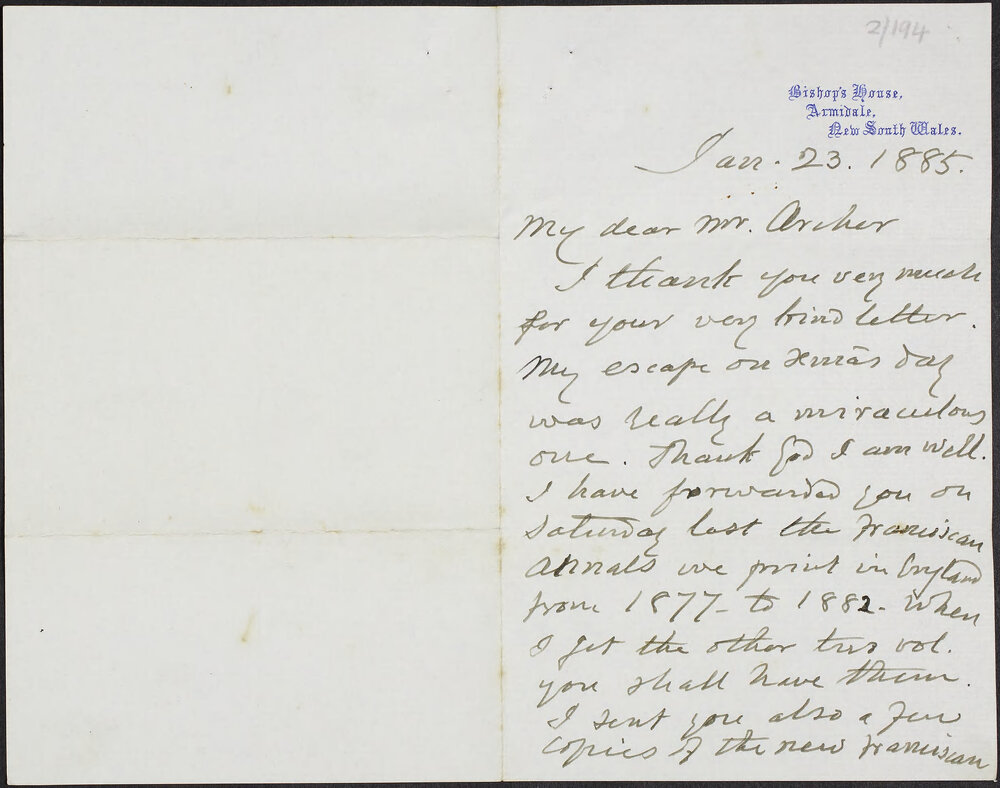 2/194
Bishop's House,
Armidale,
New South Wales.
Jan. 23. 1885.
My dear Mr. Archer
I thank you very much
for your very kind letter.
My escape on Xmas day
was really a miraculous
one. Thank God I am well.
I have forwarded you on
Saturday last the Franciscan
Annals we print in England
from 1877 - to 1882 - When
I get the other two vol.
you shall have them.
I sent you also a few
copies of the new Franciscan